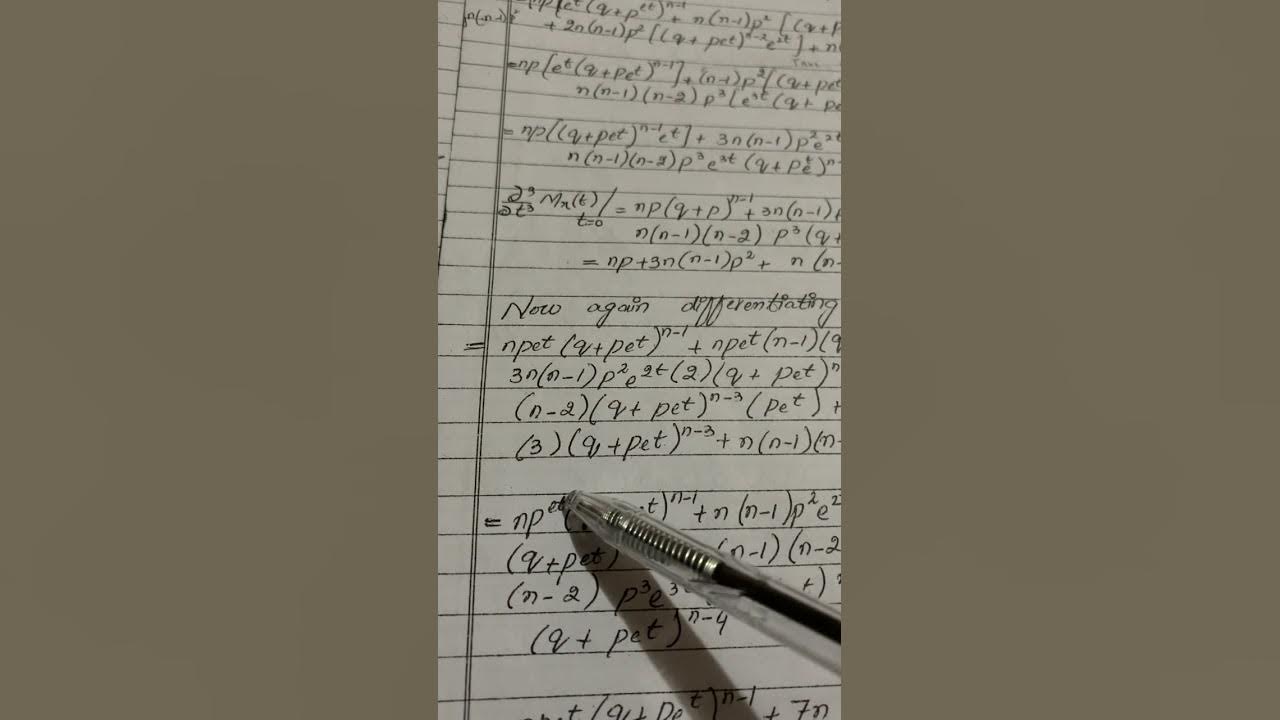 n(n-1)
np[et(q+pet)^n-1 + n(n-1)p² [(q+p
+ 2n(n-1)p² [(q+pet)^n-2 e^2t] + n(
=np[et(q+pet)^n-1]+(n-1)p²[(q+pet
n(n-1)(n-2) p³[e^3t(q+ pe
= np[(q+pet)^n-1 et] + 3n(n-1)p²e^2t
n(n-1)(n-2)p³e^3t (q+pet)^n-
∂³/∂t³ Mx(t)/t=0 = np(q+p)^n-1 + 3n(n-1)
n(n-1)(n-2) p³(q+
= np+3n(n-1)p²+ n(n-
Now again differentiating
= npet(q+pet)^n-1 + npet(n-1)(q
3n(n-1)p²e^2t(2)(q+ pet)^n
(n-2)(q+ pet)^n-3 (pet) +
(3)(q+pet)^n-3 + n(n-1)(n-
= np^et( t)^n-1 +n(n-1)p²e²
(q+pet) (n-1)(n-2
(n-2) p³e³ +)
(q+ pet)^n-4
pet(q+pet)^n-1 + 7n